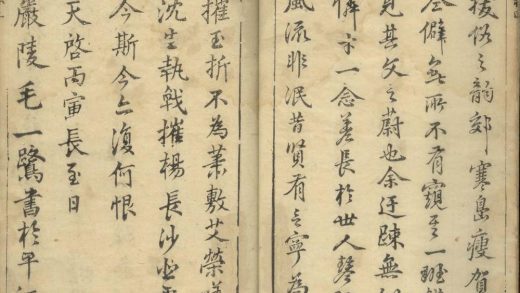 拔俗之韻郊寒島瘦賀
僻無所不有窺其一斑
見其文之蔚也余迂踈無
僻分一念善長於世人
風流非泯昔賢有言寧為
摧玉折不為蕭敷艾榮
沈生執戟摧楊長沙
今斯今亦復何恨
天啓丙寅長至日
嚴陵毛一鷺書於平